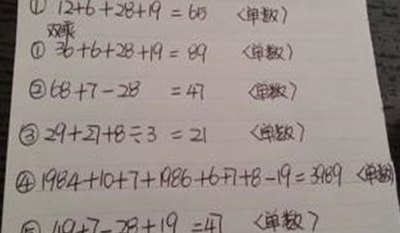 ① 12+6+28+19=65 <单数>
双乘
① 36+6+28+19=89 <单数>
② 68+7-28 =47 <单数>
③ 29+27+8÷3=21 <单数>
④ 1984+10+7+1986+6+7+8-19=3989 <单数>
⑤ 49+7-28+19=47 <单数>